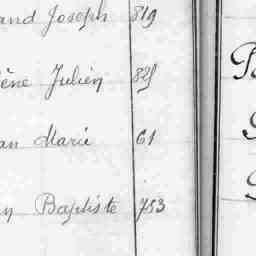 and Joseph 819
ène Julien
an Marie 61
n Baptiste 753